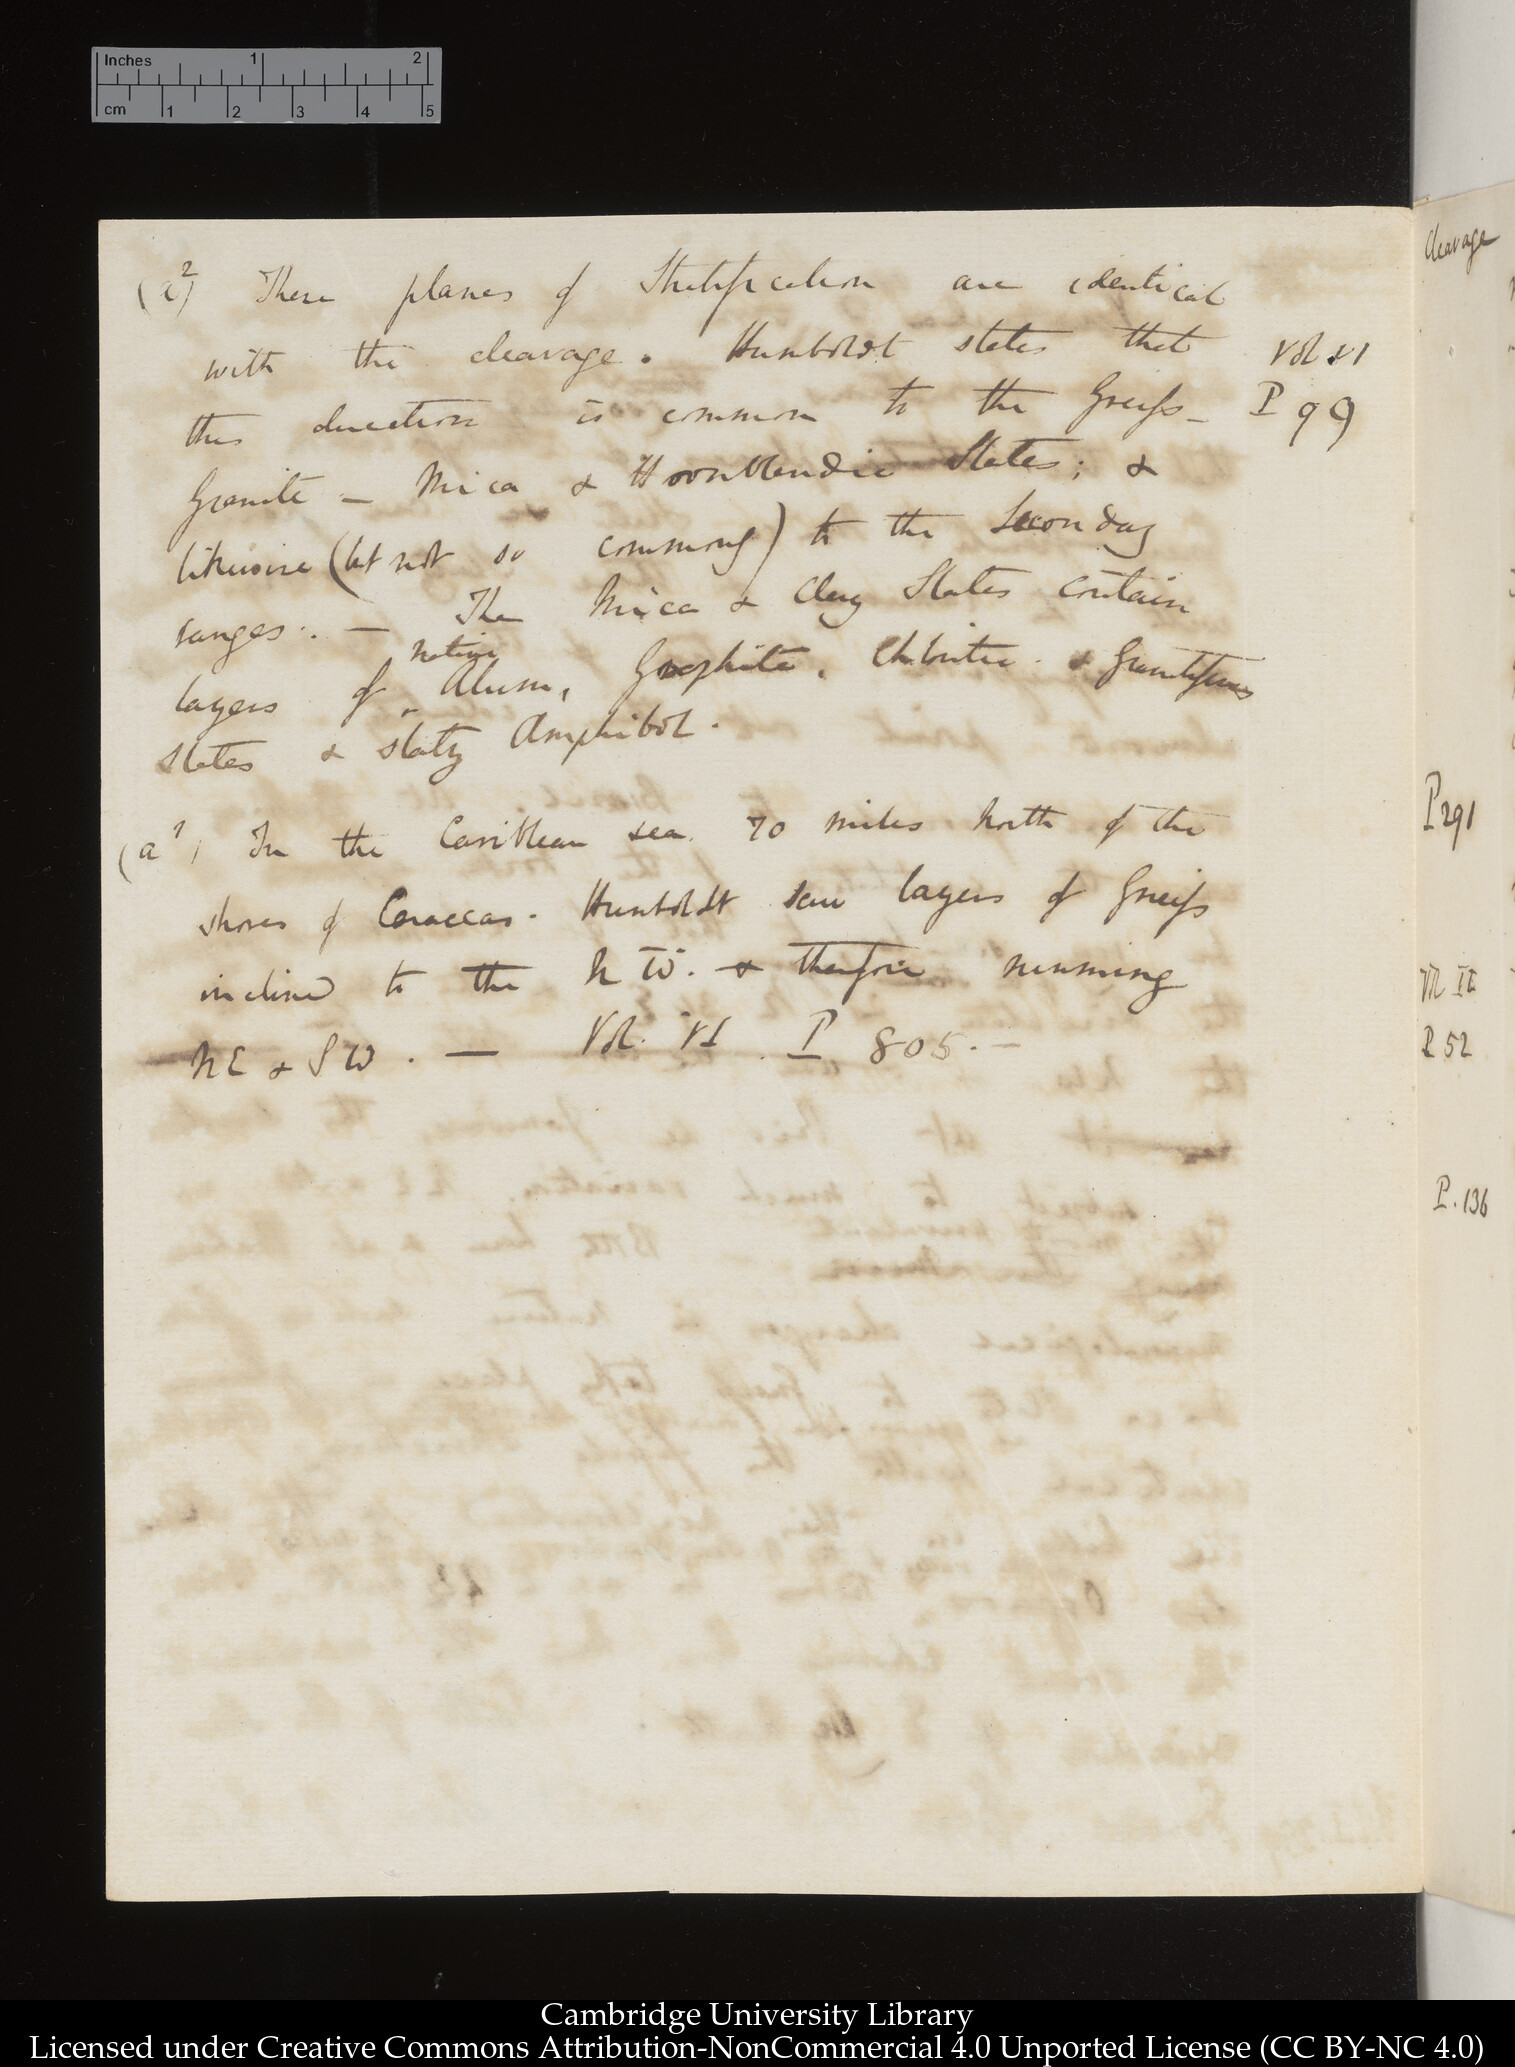 Inches 1 2
cm 1 2 3 4 5
(a²) These planes of Stratification are identical
with the cleavage. Humboldt states that
Vol VI
this direction is common to the Gneiss –
P 99
Granite – Mica & Hornblendic Slates; &
likewise (but not so commonly) to the Seconday
ranges. — The Mica & Clay Slates contain
native
layers of Alum, Graphite, Chloritic & 
slates & slaty Amphibol.
(a¹) In the Caribbean sea 70 miles North of the
shores of Caraccas. Humboldt saw layers of Gneiss
inclined to the NW. & therefore running
NE & SW. — Vol. VI. P 805. —
Cleavage
P 291
P 52
P. 136
Cambridge University Library
Licensed under Creative Commons Attribution-NonCommercial 4.0 Unported License (CC BY-NC 4.0)